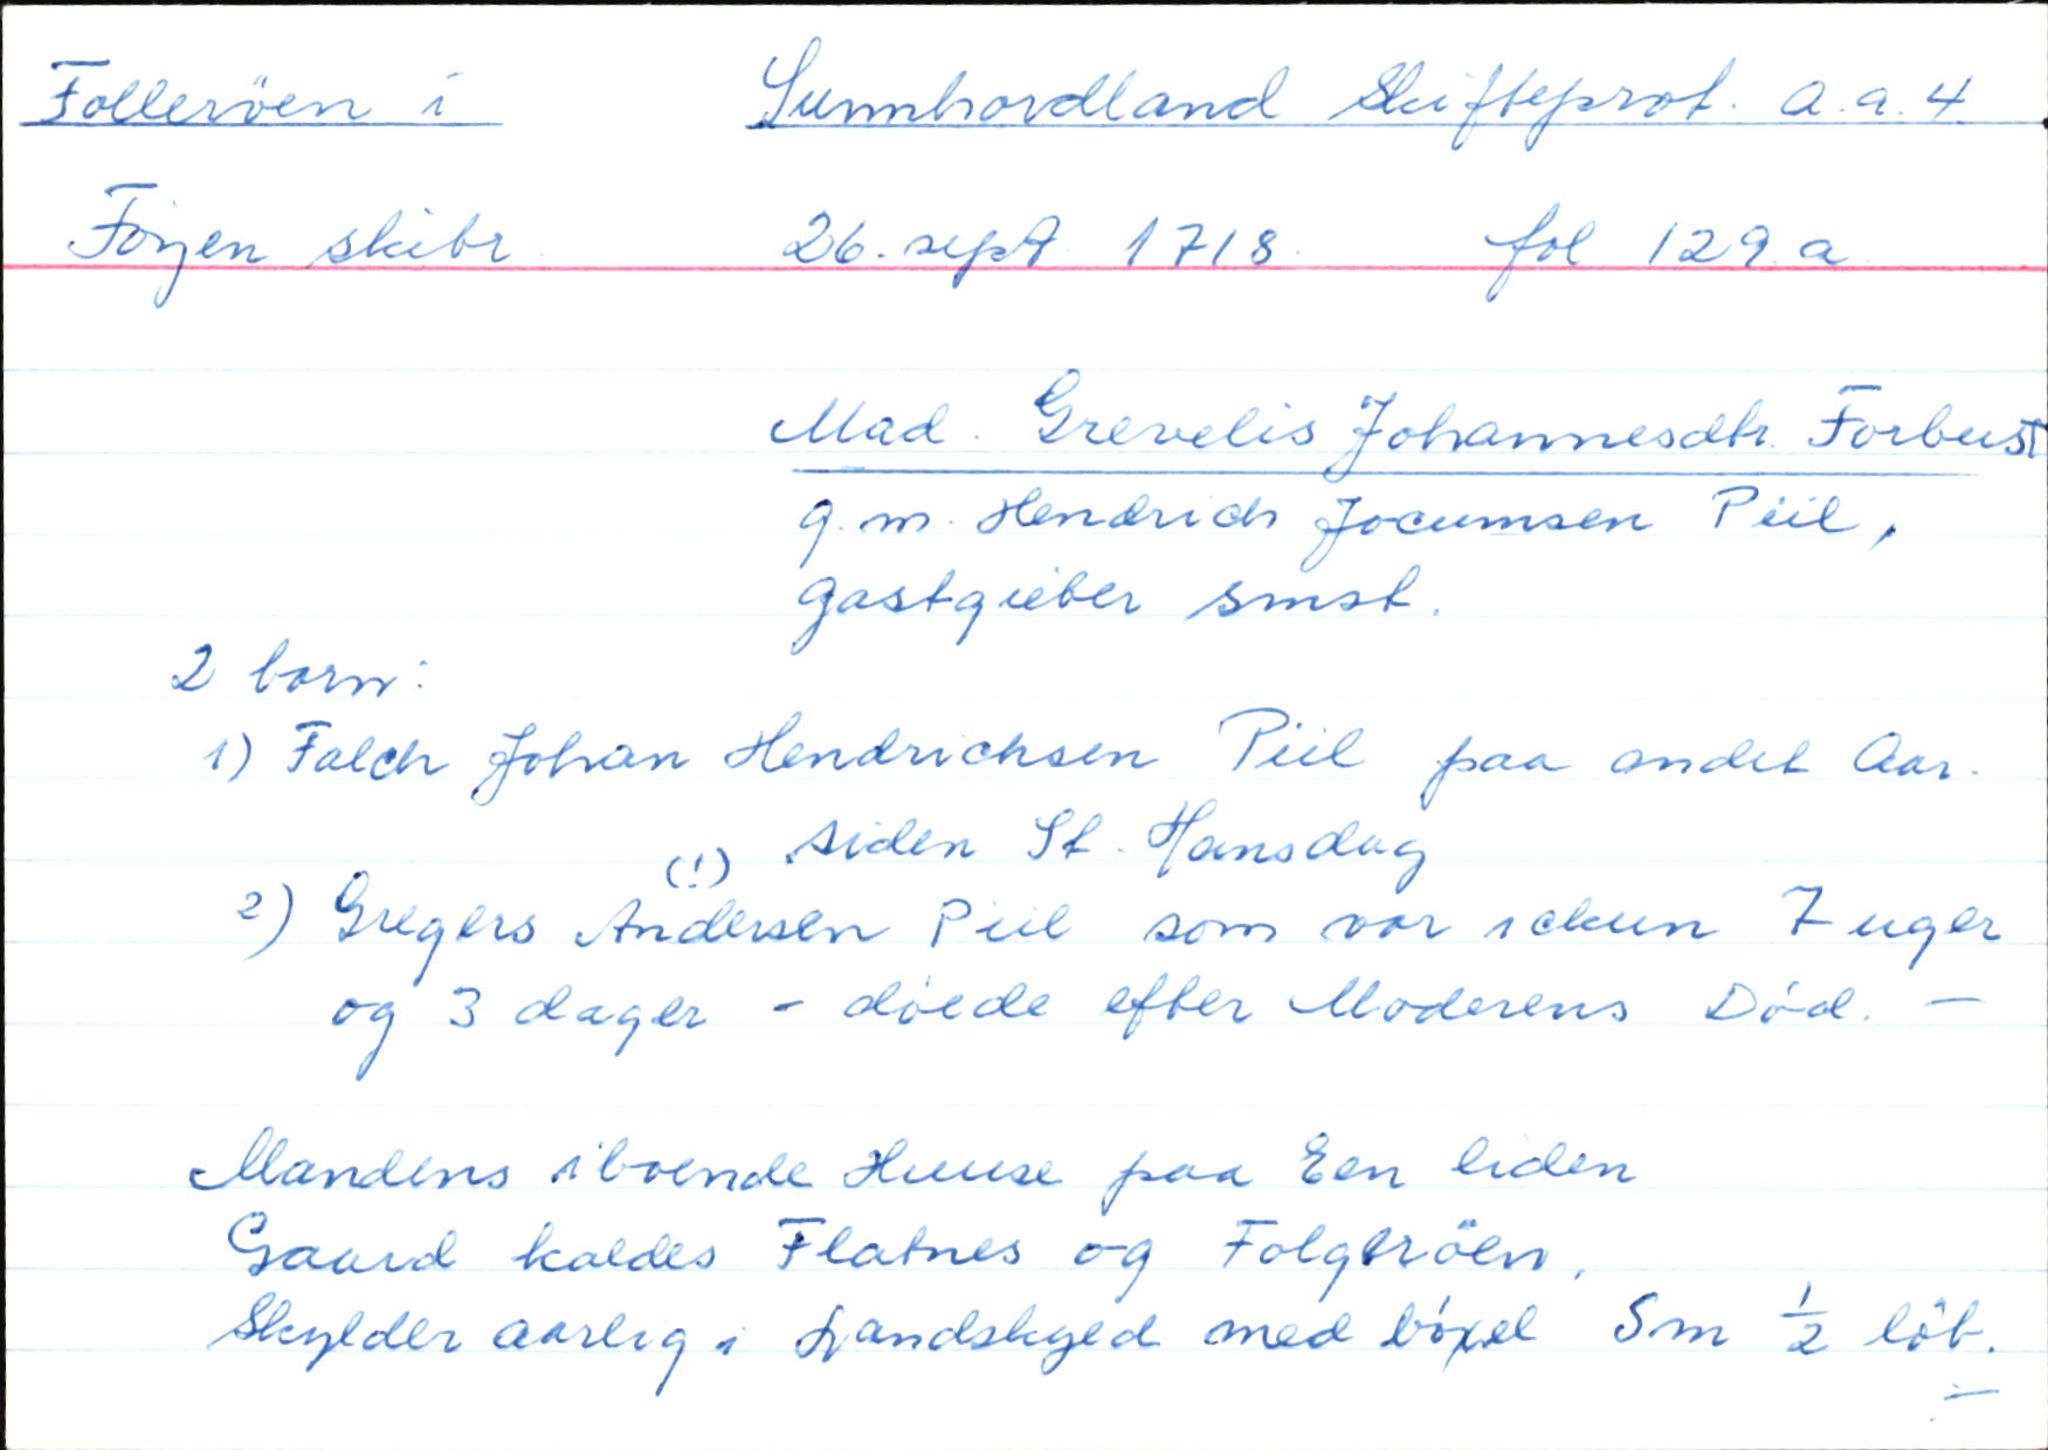 Folleröen i Sunnhordland Skifteprot. a.a.4.
Föyen skibr. 26. sept 1718. fol 129.a
Mad. Grevelis Johannesdtr. Forbust
g.m. Hendrich Jocumsen Piil,
gastgieber smst.
2 born:
1) Falch Johan Hendrichsen Piil paa andet Aar.
siden St. Hansdag
(!)
2) Gregers Andersen Piil som var ickun 7 uger
og 3 dager - döede efter Moderens Död. -
Mandens iboende Huuse paa Een liden
Gaard kaldes Flatnes og Folgeröen,
Skylder aarlig i Landskyld med böxel Sm 1/2 löb.